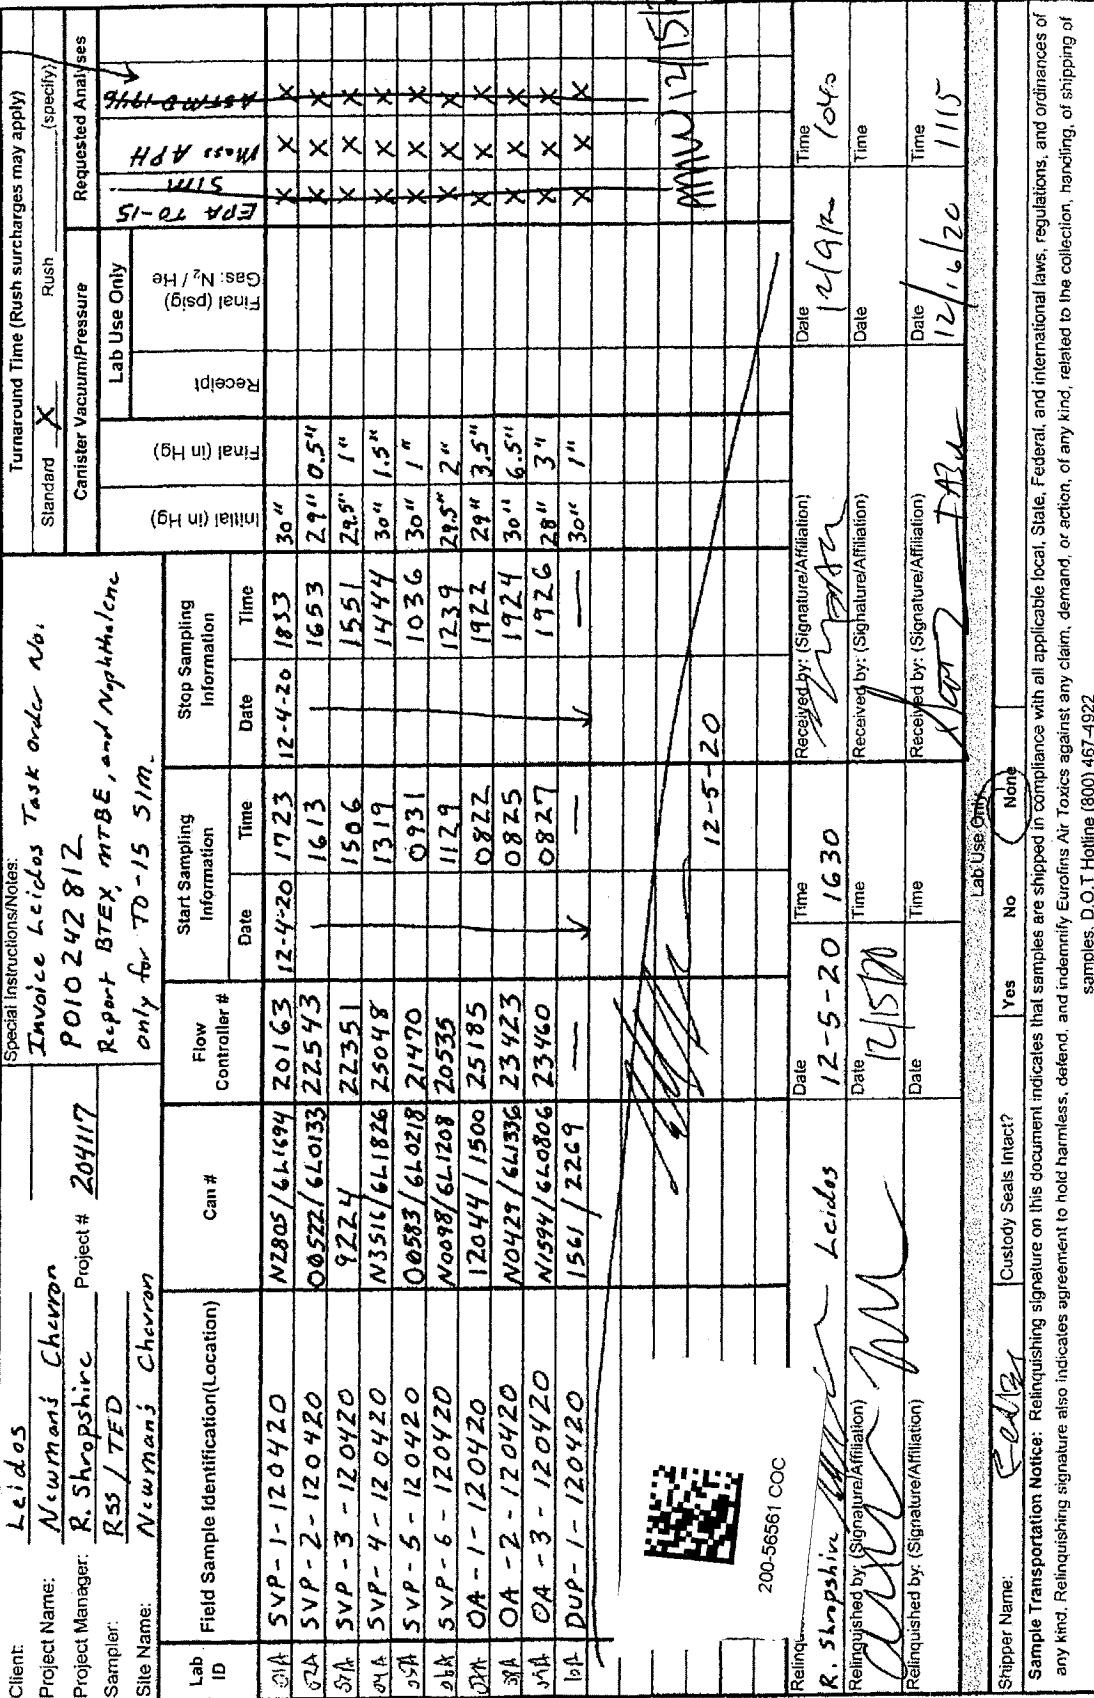 Client: Leidos
Project Name: Newman's Chevron
Project Manager: R. Shropshire Project # 204117
Sampler: RSS / TED
Site Name: Newman's Chevron
Special Instructions/Notes:
Invoice Leidos Task order No.
P010242812
Report BTEX, MTBE, and Naphthalene
only for TO-15 SIM.
Turnaround Time (Rush surcharges may apply)
Standard X Rush (specify)
Canister Vacuum/Pressure Requested Analyses
Lab Use Only
Lab ID Field Sample Identification(Location) Can # Flow Controller # Start Sampling Information Stop Sampling Information
Date Time Date Time Initial (in Hg) Final (in Hg) Receipt Final (psig) Gas: N2 / He EPA TO-15 SIM Mass APH ASTM D 1946
01A SVP - 1 - 120420 N2805/6L1694 20163 12-4-20 1723 12-4-20 1833 30" X X X
02A SVP - 2 - 120420 00522/6L0133 22543 1613 1653 29" 0.5" X X X
SVP - 3 - 120420 9224 22351 1506 1551 29.5" 1" X X X
04A SVP - 4 - 120420 N3516/6L1826 25048 1319 1444 30" 1.5" X X X
05A SVP - 5 - 120420 00583/6L0218 21470 0931 1036 30" 1" X X X
06A SVP - 6 - 120420 N0098/6L1208 20535 1129 1239 29.5" 2" X X X
OA - 1 - 120420 12044/1500 25185 0822 1922 29" 3.5" X X X
OA - 2 - 120420 N0429/6L1336 23423 0825 1924 30" 6.5" X X X
OA - 3 - 120420 N1594/6L0806 23460 0827 1926 28" 3" X X X
10A DUP - 1 - 120420 1561 / 2269 — — — 30" 1" X X X
12-5-20
12/15/
200-56561 COC
Relinq
R. Shropshire Leidos
Date 12-5-20 Time 1630
Received by: (Signature/Affiliation)
Date Time
Relinquished by: (Signature/Affiliation)
Date 12/15/20 Time
Received by: (Signature/Affiliation)
Date Time
Relinquished by: (Signature/Affiliation)
Date Time
Received by: (Signature/Affiliation)
Date 12/16/20 Time 1115
Lab Use Only
Shipper Name: FedEx Custody Seals Intact? Yes No None
Sample Transportation Notice: Relinquishing signature on this document indicates that samples are shipped in compliance with all applicable local, State, Federal, and international laws, regulations, and ordinances of
any kind. Relinquishing signature also indicates agreement to hold harmless, defend, and indemnify Eurofins Air Toxics against any claim, demand, or action, of any kind, related to the collection, handling, of shipping of
samples. D.O.T Hotline (800) 467-4922